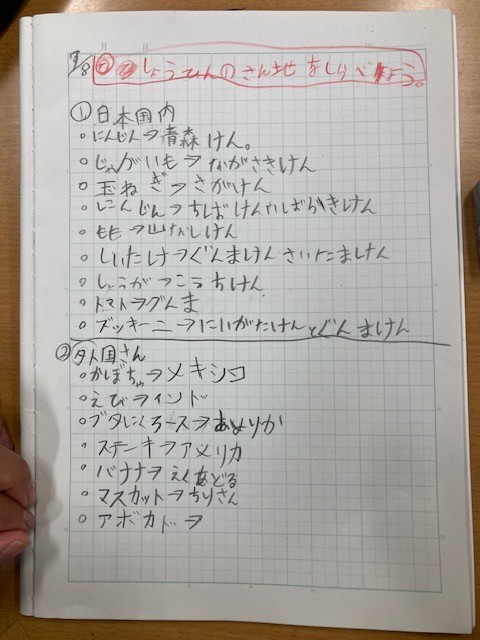 7/8 め しょうひんのさん地をしらべよう。
① 日本国内
○ にんじん→青森けん。
○ じゃがいも→ながさきけん
○ 玉ねぎ→さがけん
○ にんじん→ちばけんやいばらきけん
○ もも→山なしけん
○ しいたけ→ぐんまけんさいたまけん
○ しょうが→こうちけん
○ トマト→グんま
○ ズッキーニ→にいがたけんとぐんまけん
② 外国さん
○ かぼちゃ→メキシコ
○ えび→インド
○ ブタにくロース→あめりか
○ ステーキ→アメリカ
○ バナナ→えくあどる
○ マスカット→ちりさん
○ アボカド→